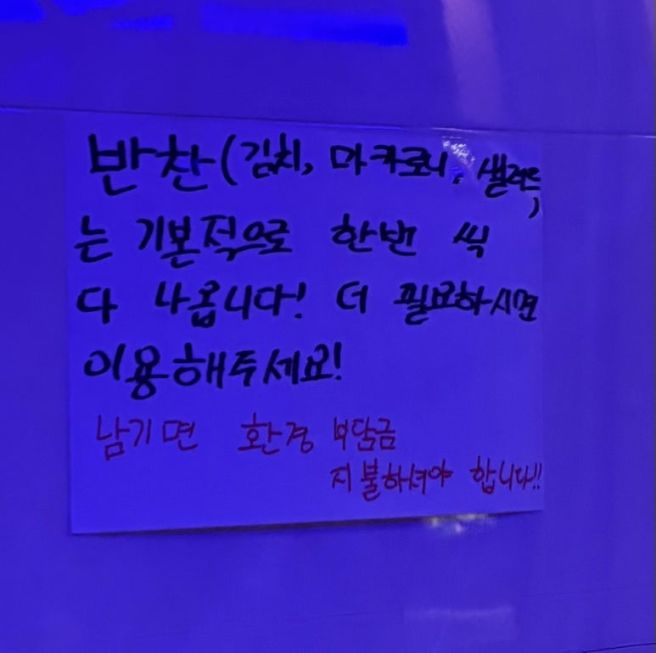 반찬(김치, 마카로니, 샐러드)
는 기본적으로 한번 씩
다 나옵니다! 더 필요하시면
이용해주세요!
남기면 환경 부담금
지불하셔야 합니다!!